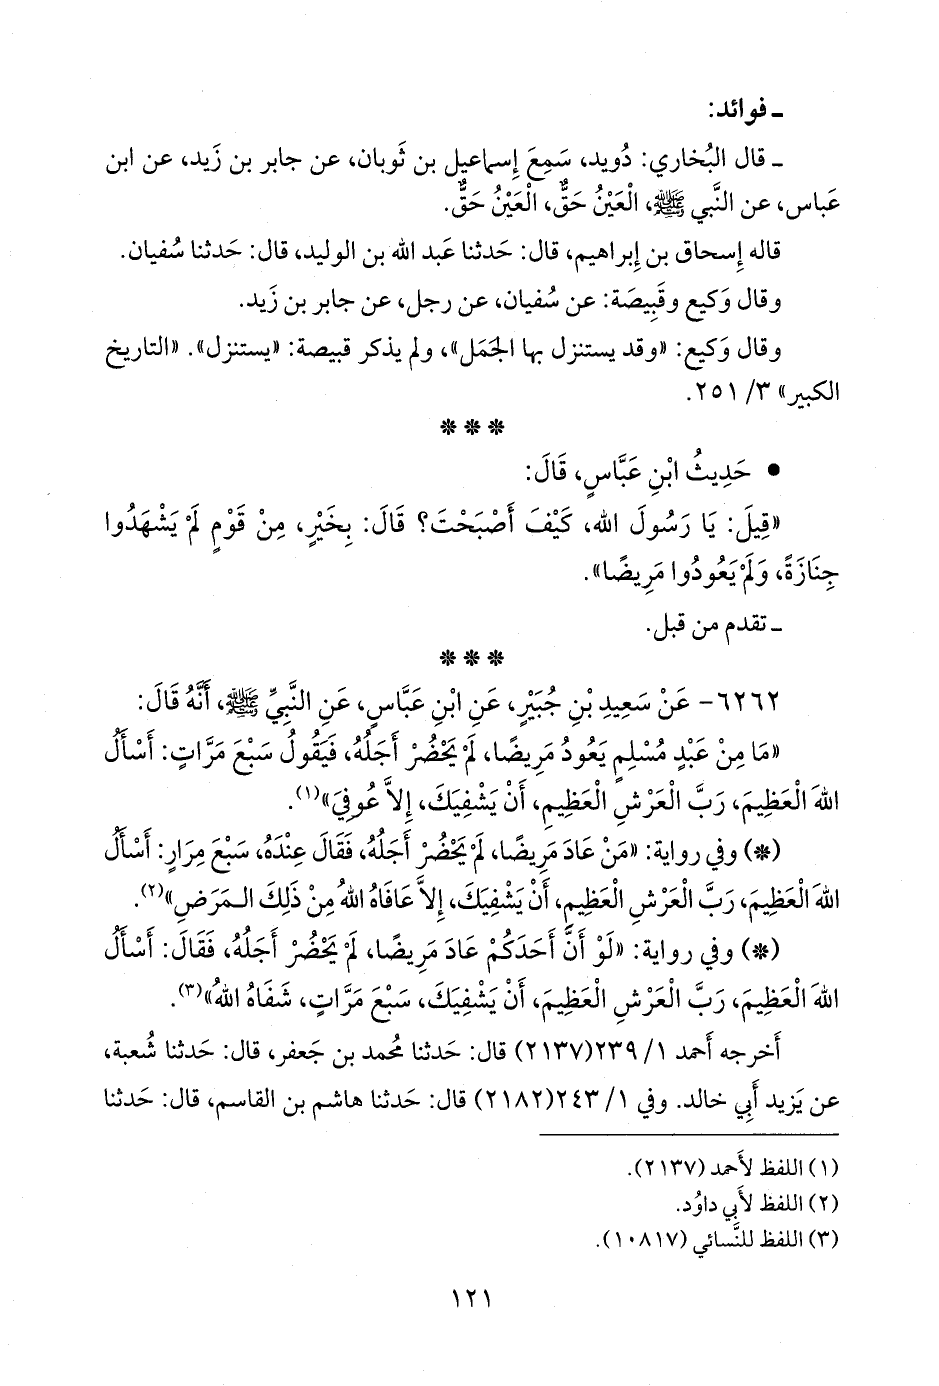 ـ فوائد:
ـ قال البُخاري: دُويد، سَمِعَ إِسماعيل بن ثَوبان، عن جابر بن زَيد، عن ابن
عَباس، عن النَّبي ﷺ، الْعَيْنُ حَقٌّ، الْعَيْنُ حَقٌّ.
قاله إِسحاق بن إِبراهيم، قال: حَدثنا عَبد الله بن الوليد، قال: حَدثنا سُفيان.
وقال وَكيع وقَبِيصَة: عن سُفيان، عن رجل، عن جابر بن زَيد.
وقال وَكيع: «وقد يستنزل بها الجَمَل»، ولم يذكر قبيصة: «يستنزل». «التاريخ
الكبير» ٣/ ٢٥١.
❊ ❊ ❊
• حَدِيثُ ابْنِ عَبَّاسٍ، قَالَ:
«قِيلَ: يَا رَسُولَ الله، كَيْفَ أَصْبَحْتَ؟ قَالَ: بِخَيْرٍ، مِنْ قَوْمٍ لَمْ يَشْهَدُوا
جِنَازَةً، وَلَمْ يَعُودُوا مَرِيضًا».
ـ تقدم من قبل.
❊ ❊ ❊
٦٢٦٢- عَنْ سَعِيدِ بْنِ جُبَيْرٍ، عَنِ ابْنِ عَبَّاسٍ، عَنِ النَّبِيِّ ﷺ، أَنَّهُ قَالَ:
«مَا مِنْ عَبْدٍ مُسْلِمٍ يَعُودُ مَرِيضًا، لَمْ يَحْضُرْ أَجَلُهُ، فَيَقُولُ سَبْعَ مَرَّاتٍ: أَسْأَلُ
اللهَ الْعَظِيمَ، رَبَّ الْعَرْشِ الْعَظِيمِ، أَنْ يَشْفِيَكَ، إِلاَّ عُوفِيَ»(١).
(*) وفي رواية: «مَنْ عَادَ مَرِيضًا، لَمْ يَحْضُرْ أَجَلُهُ، فَقَالَ عِنْدَهُ، سَبْعَ مِرَارٍ: أَسْأَلُ
اللهَ الْعَظِيمَ، رَبَّ الْعَرْشِ الْعَظِيمِ، أَنْ يَشْفِيَكَ، إِلاَّ عَافَاهُ اللهُ مِنْ ذَلِكَ الـمَرَضِ»(٢).
(*) وفي رواية: «لَوْ أَنَّ أَحَدَكُمْ عَادَ مَرِيضًا، لَمْ يَحْضُرْ أَجَلُهُ، فَقَالَ: أَسْأَلُ
اللهَ الْعَظِيمَ، رَبَّ الْعَرْشِ الْعَظِيمَ، أَنْ يَشْفِيَكَ، سَبْعَ مَرَّاتٍ، شَفَاهُ اللهُ»(٣).
أَخرجه أَحمد ١/ ٢٣٩(٢١٣٧) قال: حَدثنا مُحمد بن جَعفر، قال: حَدثنا شُعبة،
عن يَزيد أَبِي خالد. وفي ١/ ٢٤٣(٢١٨٢) قال: حَدثنا هاشم بن القاسم، قال: حَدثنا
(١) اللفظ لأَحمد (٢١٣٧).
(٢) اللفظ لأَبي داوُد.
(٣) اللفظ للنَّسائي (١٠٨١٧).
١٢١